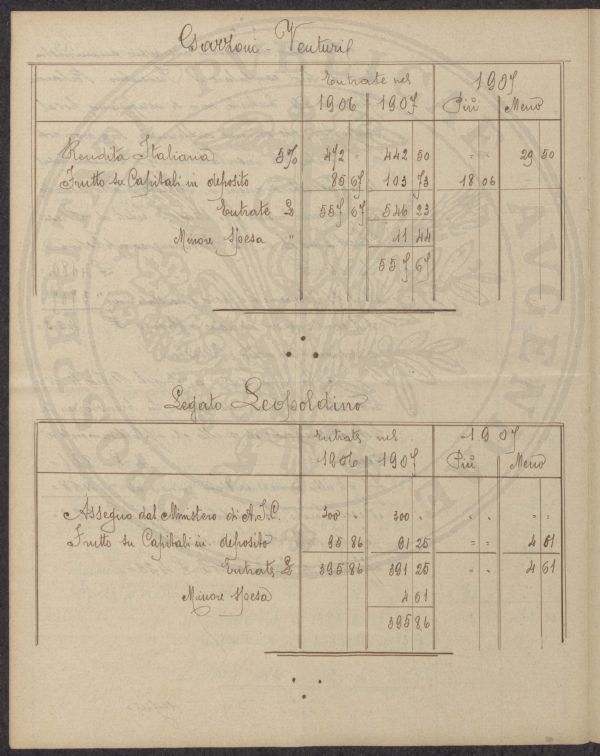 Garzoni - Venturi
Entrate nel 1907
1906 1907 Più Meno
Rendita Italiana 5% 472 - 442 50 " " 29 50
Frutto su Capitali in deposito 85 67 103 73 18 06
Entrate £ 557 67 546 23
Minore Spesa " 11 44
557 67
Legato Leopoldino
Entrate nel 1907
1906 1907 Più Meno
Assegno dal Ministero di A.I.C. 300 - 300 - " " " "
Frutto su Capitali in deposito 95 86 91 25 " " 4 61
Entrate £ 395 86 391 25 " " 4 61
Minore Spesa 4 61
395 86